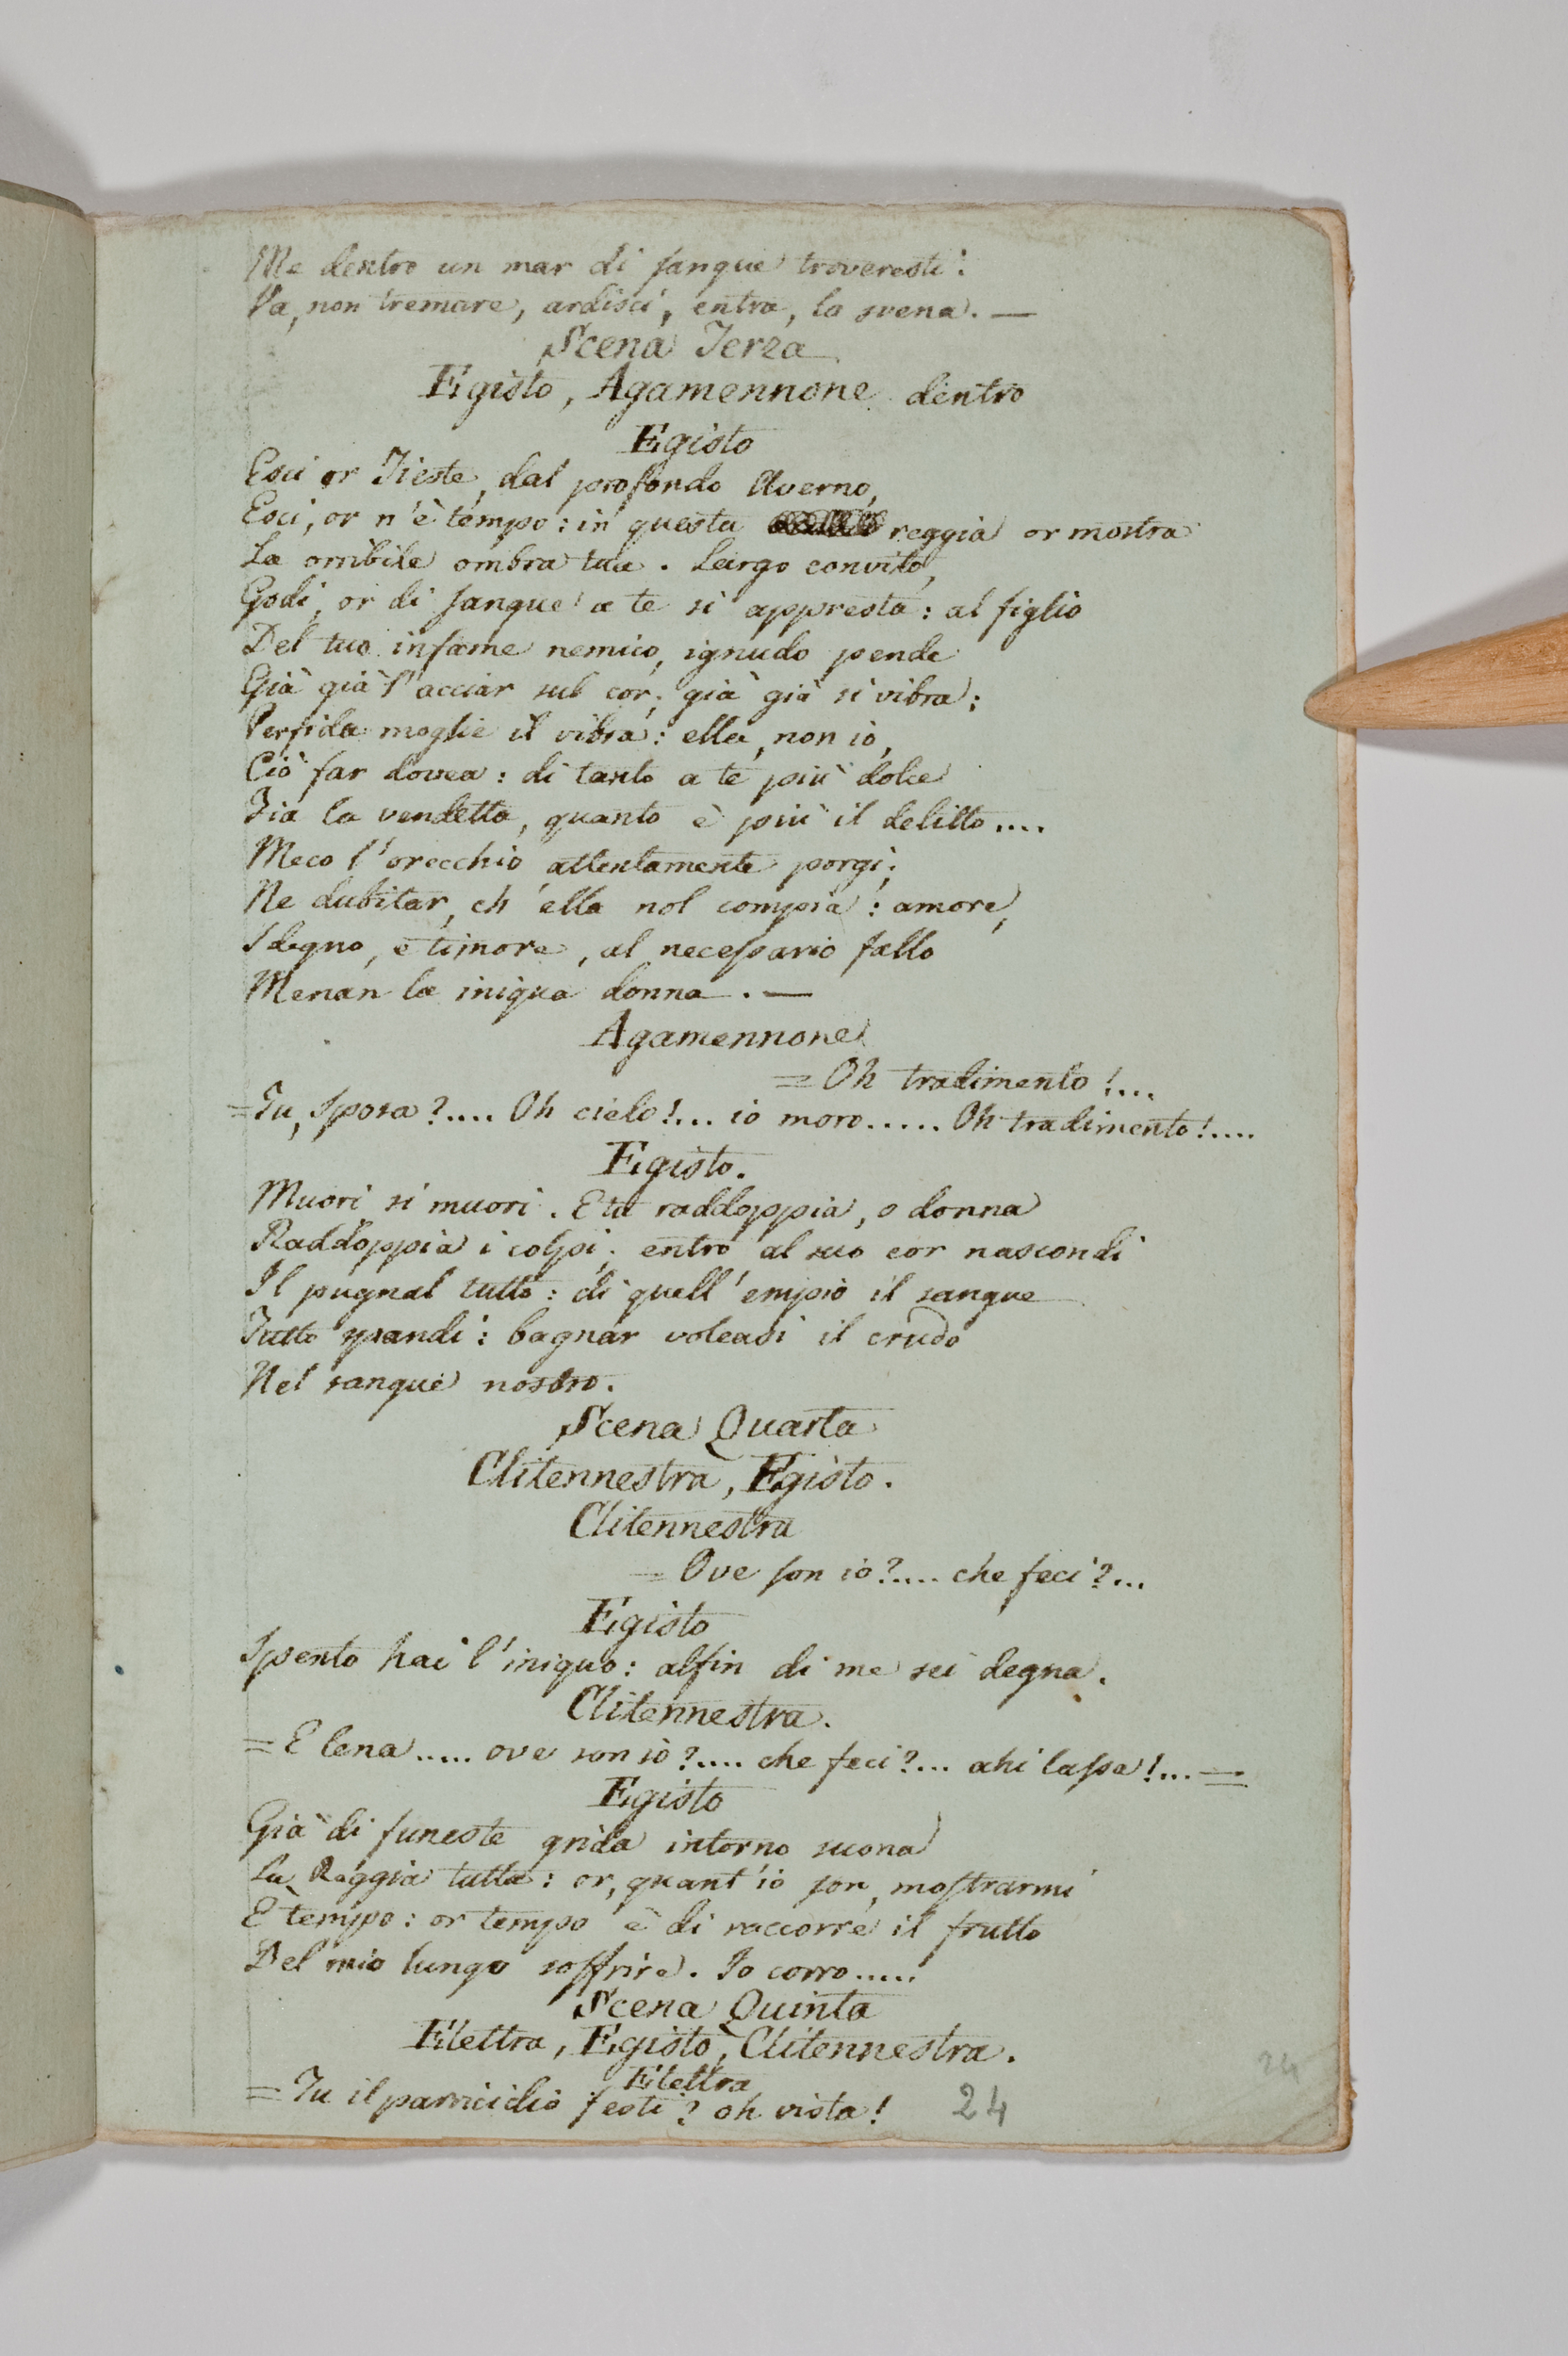 Me dentro un mar di sangue troveresti:
Va, non tremare, ardisci, entra, la svena. —
Scena Terza
Egisto, Agamennone dentro
Egisto
Esci or Tieste, dal profondo Averno,
Esci, or n'è tempo: in questa reggia or mostra
La orribile ombra tua. Largo convito,
Godi, or di sangue a te si appresta: al figlio
Del tuo infame nemico, ignudo pende
Già già l'acciar sul cor; già già si vibra;
Perfida moglie il vibra: ella, non io,
Ciò far dovea: di tanto a te più dolce
Fia la vendetta, quanto è più il delitto....
Meco l'orecchio attentamente porgi;
Ne dubitar, ch'ella nol compia: amore,
Sdegno, e timore, al necessario fallo
Menan la iniqua donna. —
Agamennone
= Oh tradimento!....
= Tu, sposa?.... Oh cielo!... io moro..... Oh tradimento!....
Egisto.
Muori si muori. E tu raddoppia, o donna
Raddoppia i colpi; entro al suo cor nascondi
Il pugnal tutto: di quell'empio il sangue
Tutto spandi: bagnar voleasi il crudo
Nel sangue nostro.
Scena Quarta
Clitennestra, Egisto.
Clitennestra
= Ove son io?.... che feci?...
Egisto
Spento hai l'iniquo: alfin di me sei degna.
Clitennestra.
= E lena..... ove son io?.... che feci?... ahi lassa!... =
Egisto
Già di funeste grida intorno suona
La Reggia tutta: or, quant'io son, mostrarmi
È tempo: or tempo è di raccorre il frutto
Del mio lungo soffrire. Io corro.....
Scena Quinta
Elettra, Egisto, Clitennestra.
Elettra
= Tu il parricidio festi? oh vista!
24
24